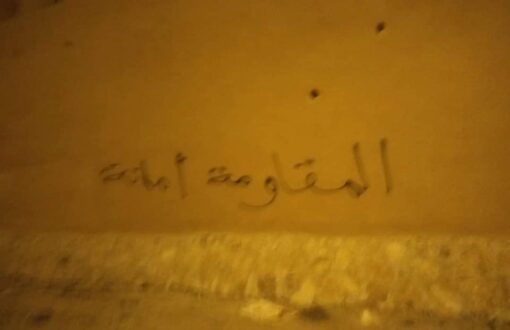 المقاومة أمانة